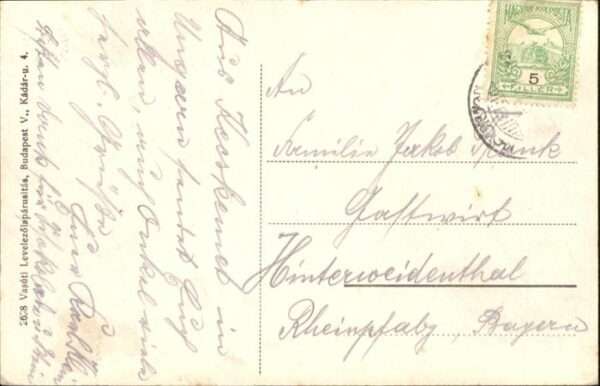 Aus Kecskemet in
Ungarn sendet Euch
allen, und Onkel viele
herzl. Grüße
Euer Karl
2628 Vasúti Levelezőlapárusitás, Budapest V., Kádár-u. 4.
5
FILLÉR
An
Familie Jakob Schunk
Gastwirt
Hinterweidenthal
Rheinpfalz, Bayern